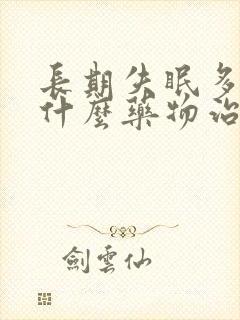 長期失眠多
什麼藥物治
劍雲仙